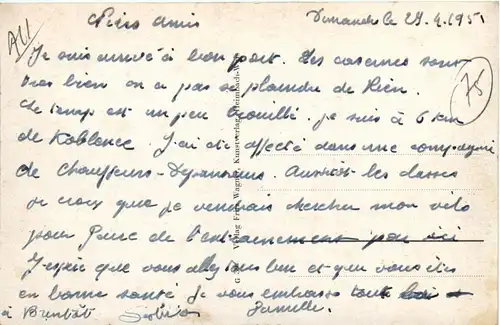 Chers amis Dimanche le 29.4.1951
All 75
Je suis arrivé à bon port. Les casernes sont
très bien on a pas se plaindre de Rien.
Le temp est un peu Brouillé. je suis à 6 km
de Koblence. J'ai été affecté dans une compagnie
de Chauffeurs-Depanneurs. Aussitôt les classes
je crois que je viendrais chercher mon vélo
pour faire de l'entrainement par ici
J'espère que vous allez tous bien et que vous êtes
en bonne santé Je vous embrasse tout
à Bientôt famille.
Verlag Fritz Wagner, Kunstverlag